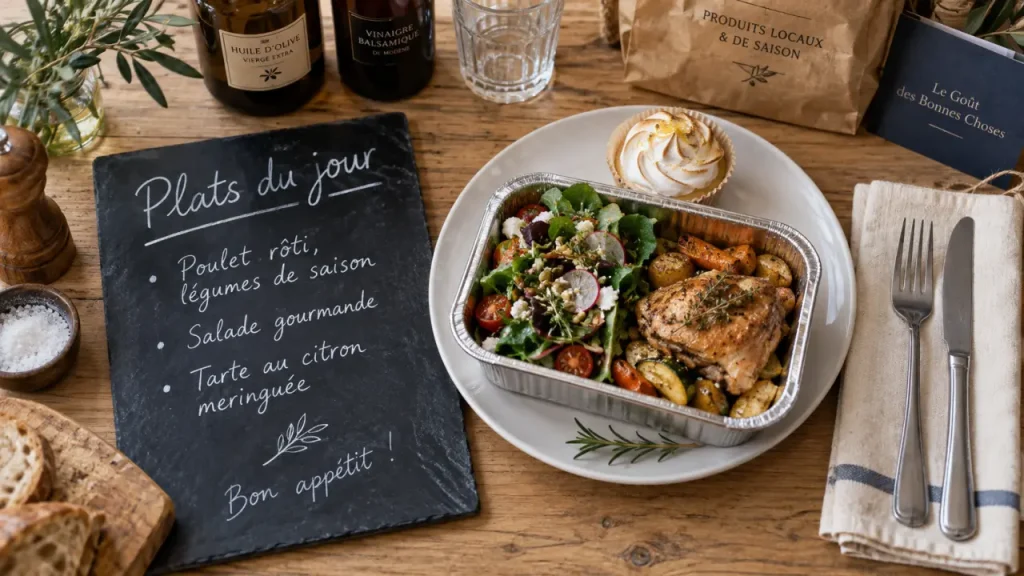 HUILE D'OLIVE
VIERGE EXTRA
VINAIGRE
BALSAMIQUE
DE MODÈNE
PRODUITS LOCAUX
& DE SAISON
Le Goût
des Bonnes Choses
Plats du jour
• Poulet rôti,
légumes de saison
• Salade gourmande
• Tarte au citron
meringuée
Bon appétit !